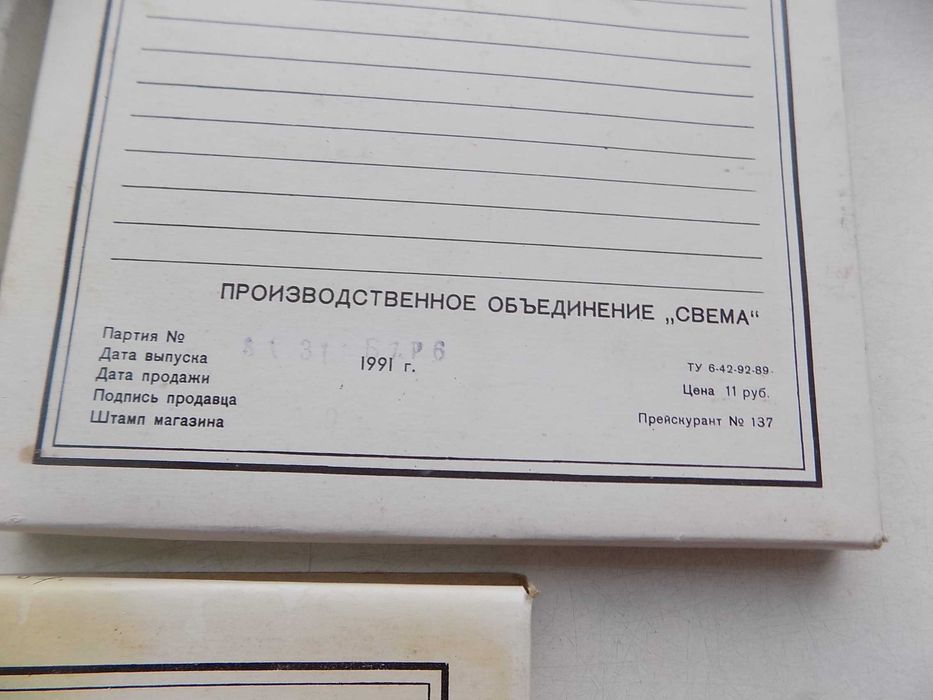 ПРОИЗВОДСТВЕННОЕ ОБЪЕДИНЕНИЕ „СВЕМА“
Партия №
Дата выпуска 1991 г.
Дата продажи
Подпись продавца
Штамп магазина
ТУ 6-42-92-89
Цена 11 руб.
Прейскурант № 137